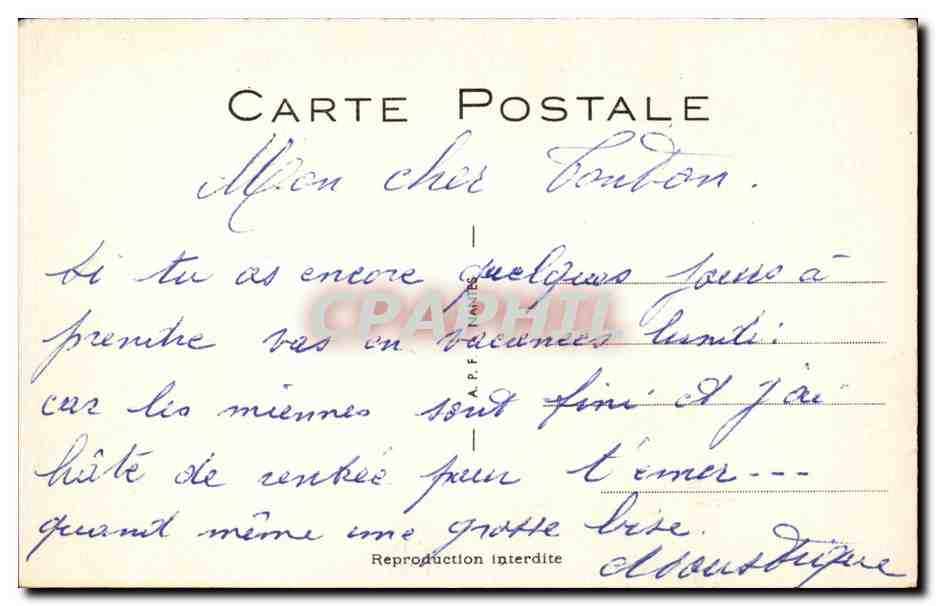 CARTE POSTALE
Mon cher Toubon.
Si tu as encore quelques jours à
prendre vas en vacances lundi.
car les miennes sont fini et j'ai
hâte de rentrée pour t'emer---
quand même une grosse bise.
Moustique
A. P. F. NANTES
CPAPHIL
Reproduction interdite